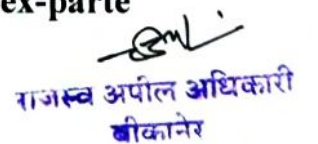 ex-parte
राजस्व अपील अधिकारी
बीकानेर